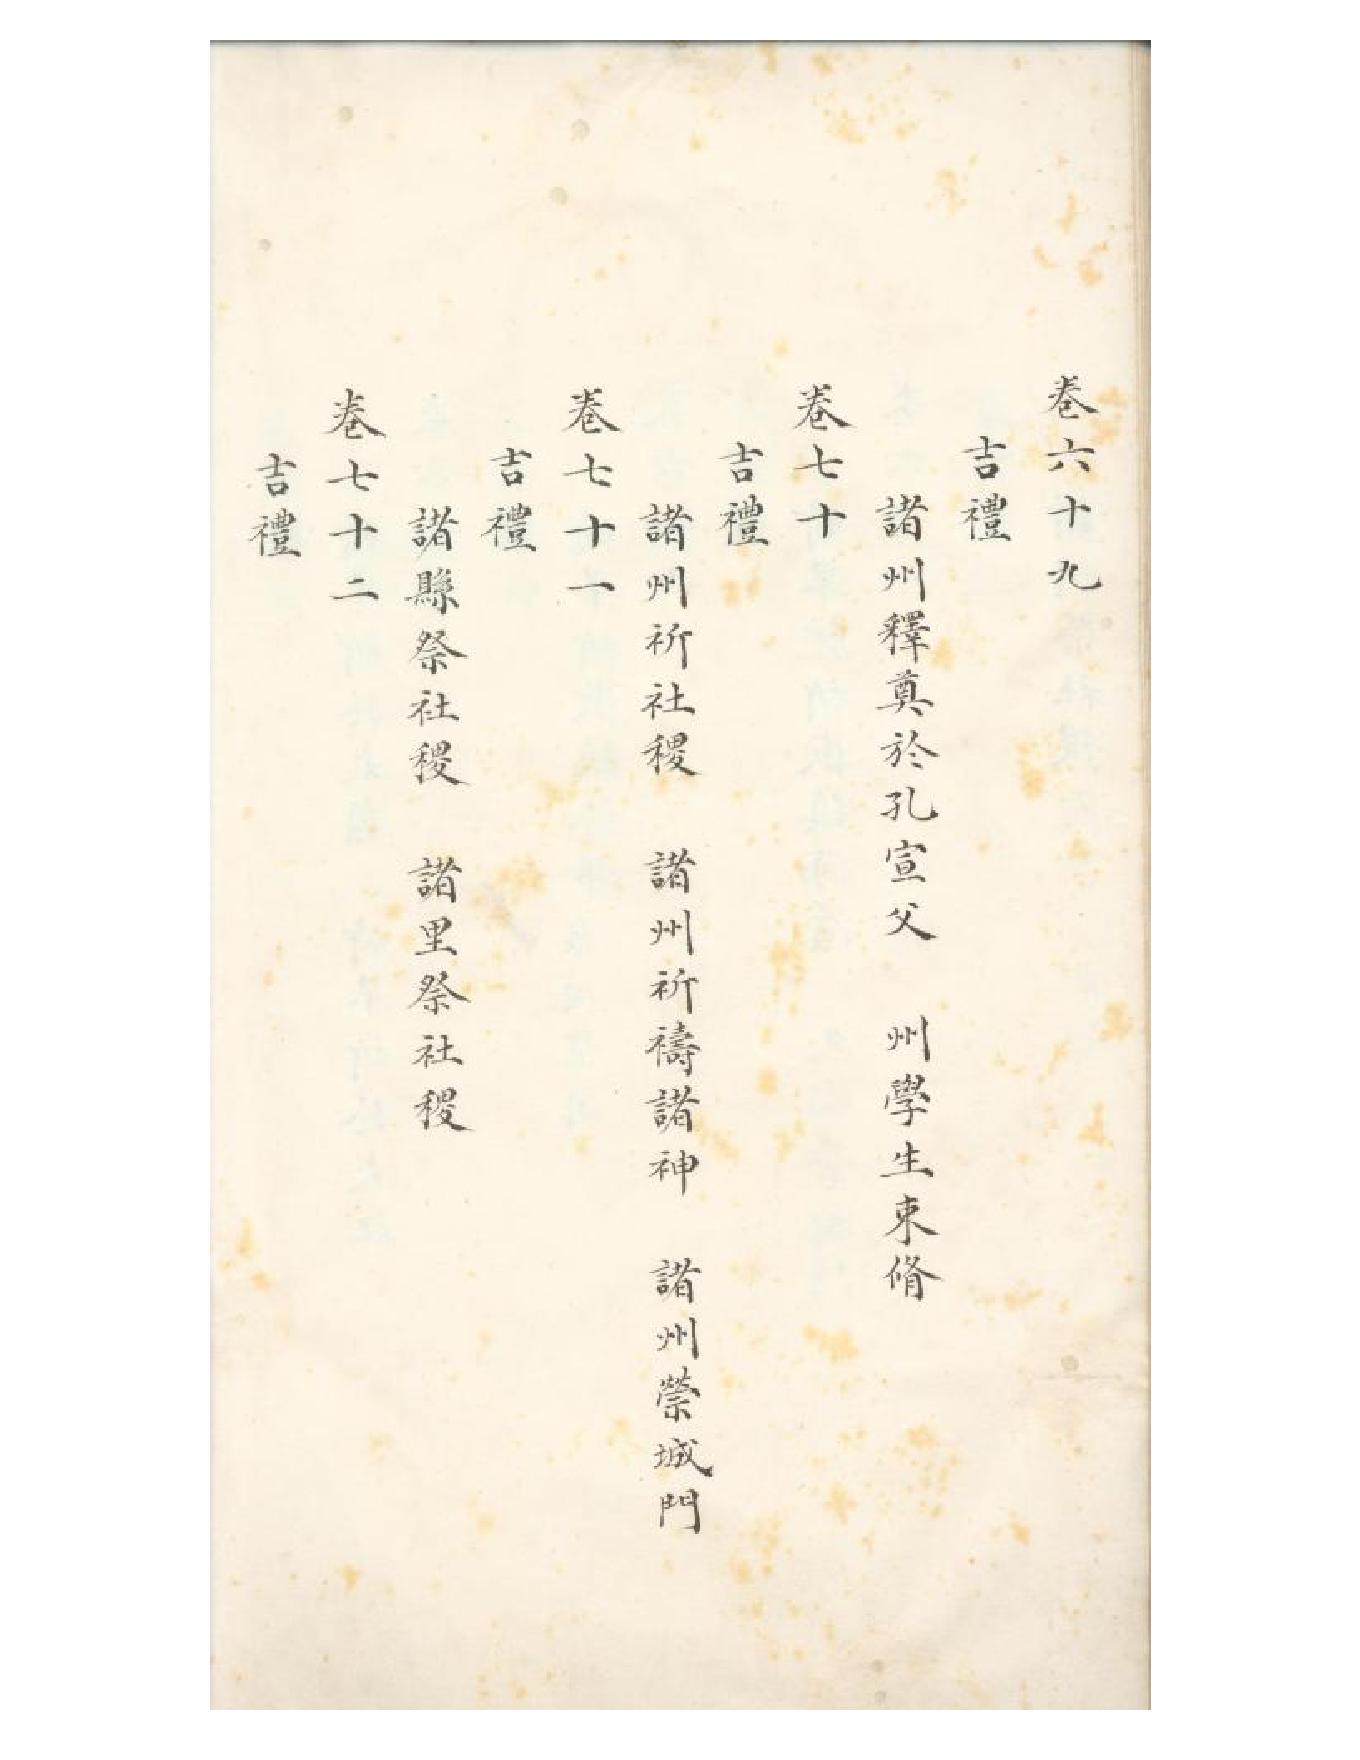 卷六十九
吉禮
諸州釋奠於孔宣父　州學生束脩
卷七十
吉禮
諸州祈社稷　諸州祈禱諸神　諸州禜城門
卷七十一
吉禮
諸縣祭社稷　諸里祭社稷
卷七十二
吉禮